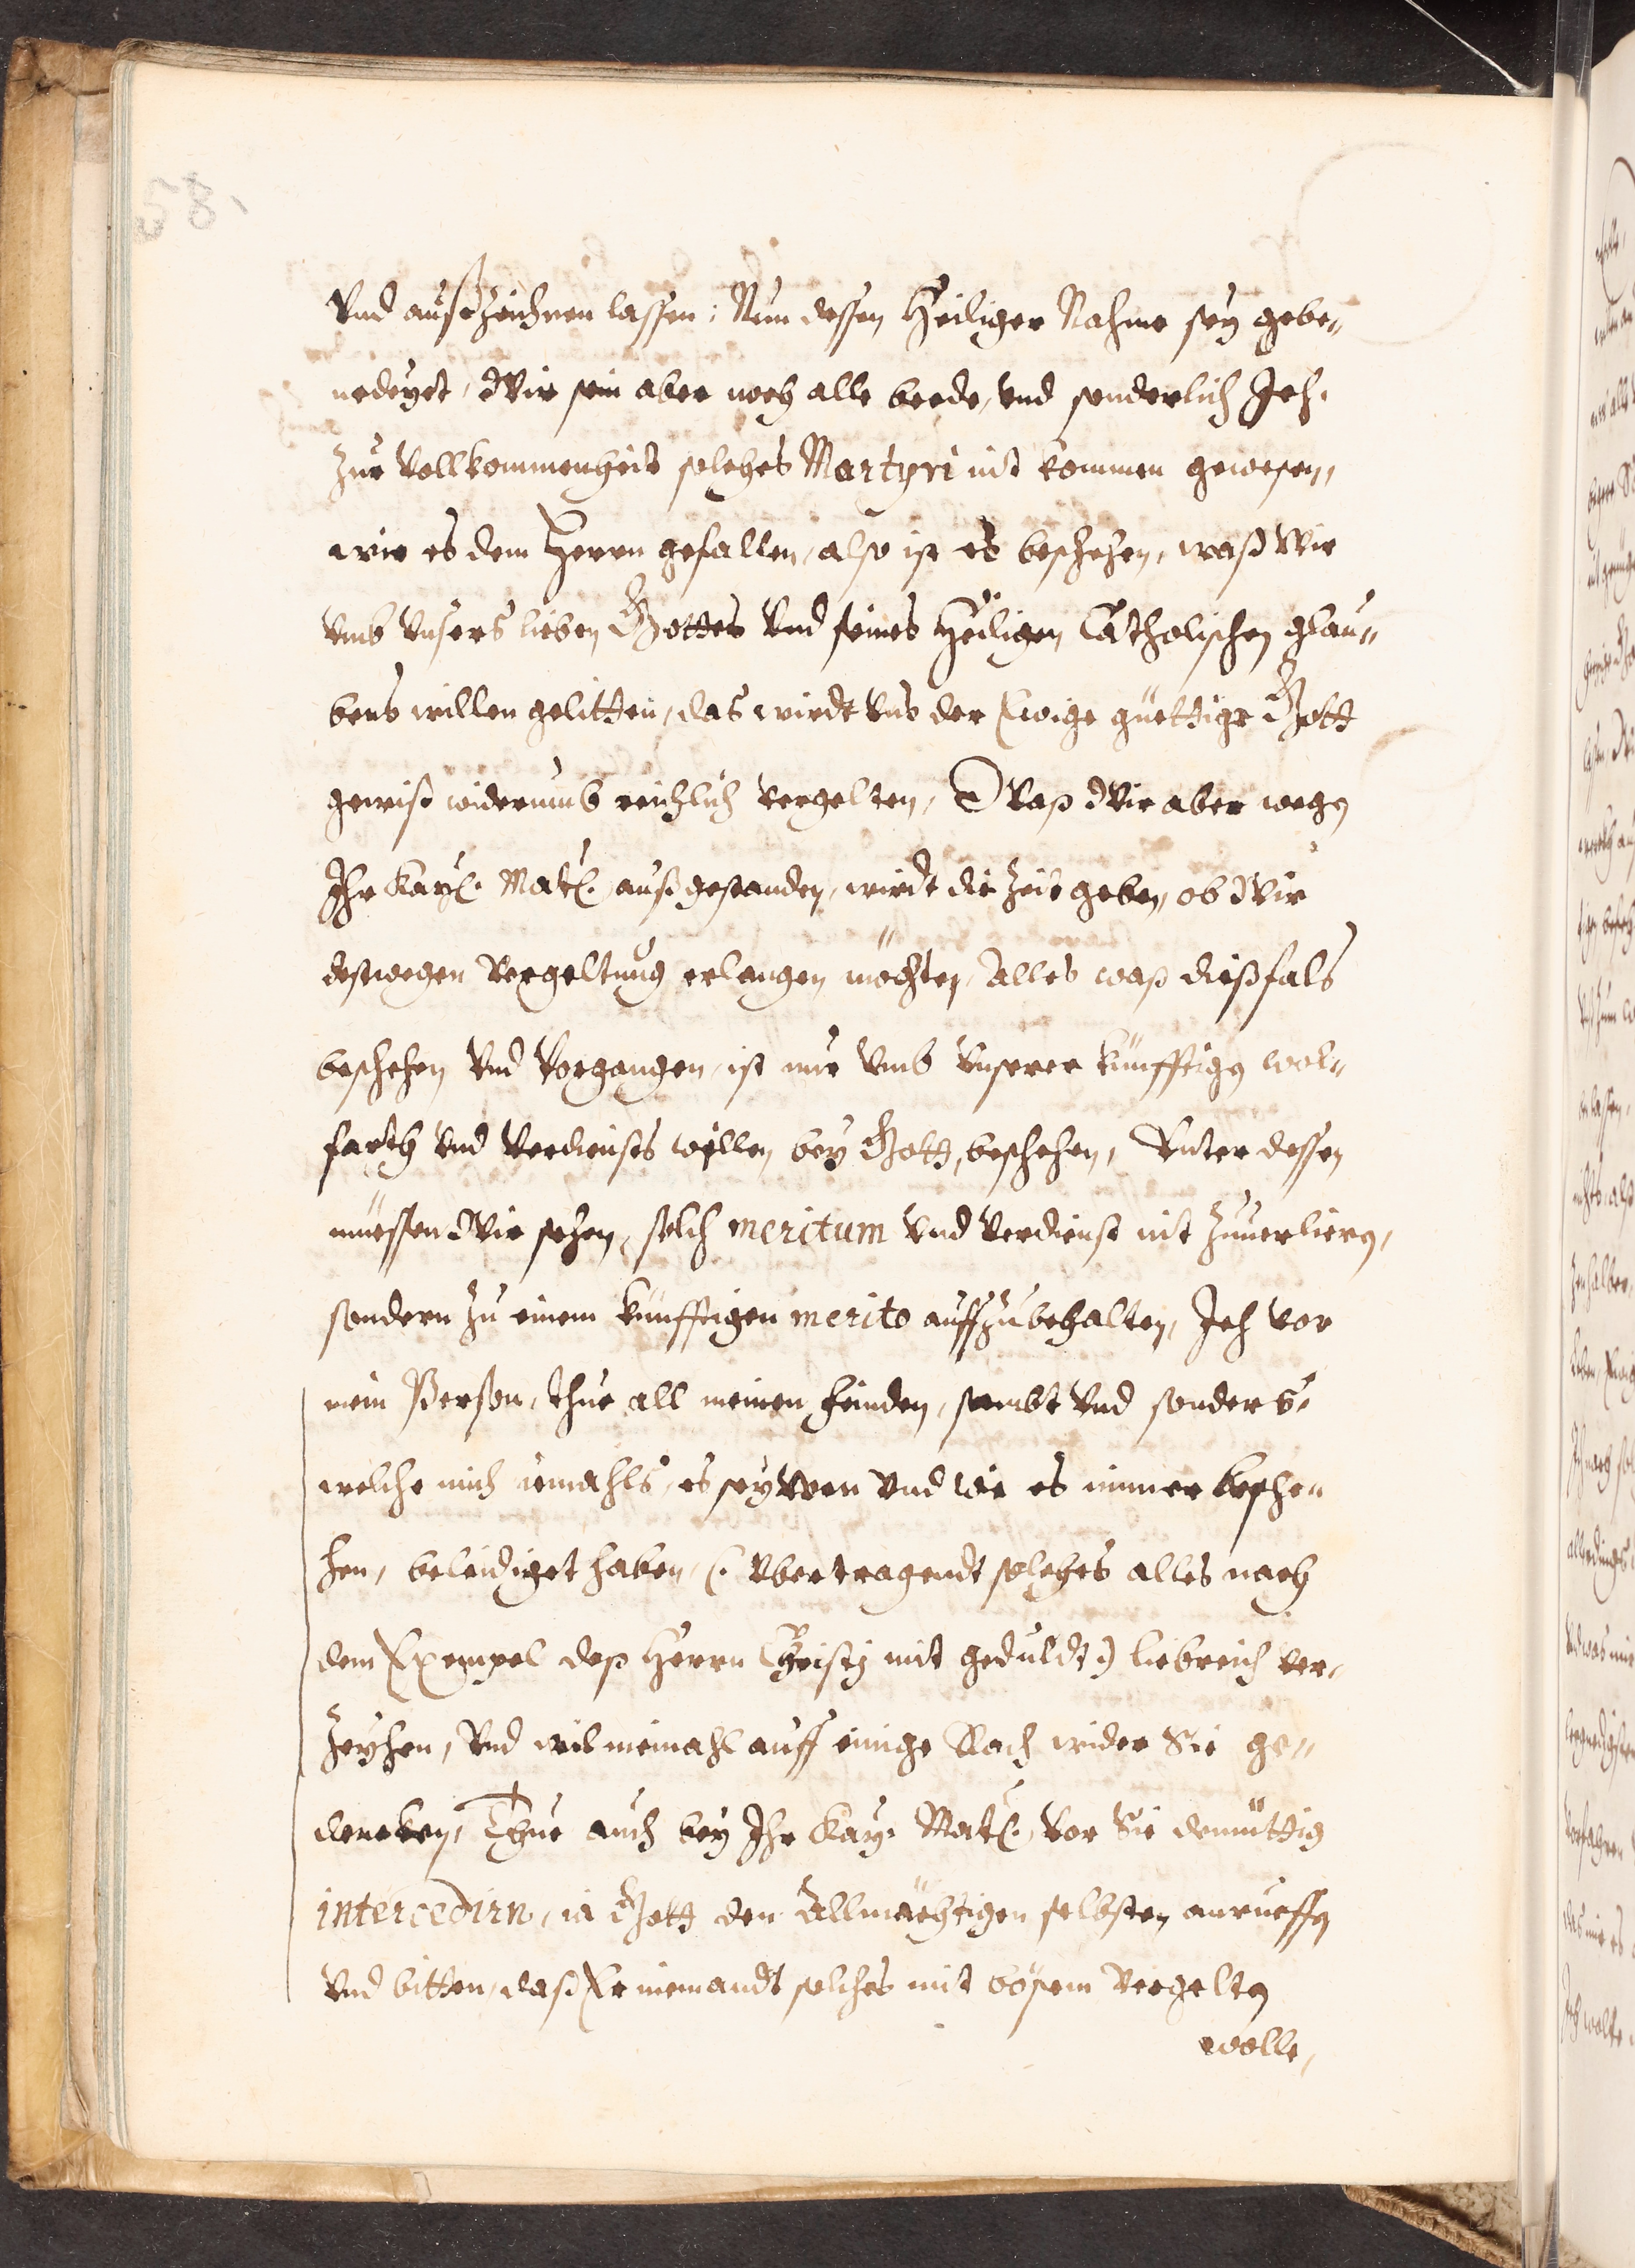 58.
Vnd außzeichnen lassen: Nun dessen Heiliger Nahme sey gebe„
nedeyet, Wir sein aber noch alle beede, vnd sonderlich Ich.
zur Vollkommenheit solches Martyri nit kommen gewesen,
wie es dem Herrn gefallen, also ist es beschehen, waß wir
vmb Vnsers lieben Gottes Vnd seines Heiligen Catholischen glau„
bens willen gelitten, das wirdt Vns der Ewige güettige Gott
gewiß widerumb reichlich vergelten, Waß Wir aber wegen
Ihr Kayl. Matl. außgestanden, wirdt die Zeit geben, ob Wir
deßwegen Vergeltung erlangen möchten, Alles waß dißfals
beschehen Vnd Vorgangen, ist nur Vmb Vnserer künfftigen wol„
farth Vnd Verdiensts willen, bey Gott, beschehen, Vnter dessen
müessen Wir sehen, solch meritum Vnd Verdienst nit zuuerliern,
sondern zu einem künfftigen merito auffzubehalten, Ich vor
mein Person, thue all meinen feinden, sambt Vnd sonders,
welche mich iemahls, es sey wen Vnd wie es immer besche„
hen, beleidiget haben, (: Vbertragendt solches alles nach
dem Exempel deß Herrn Christj mit geduldt :) liebreich ver„
Zeyhen, Vnd wil niemahl auff einige Rach wider Sie ge„
dencken, Thue auch bey Ihr Kay. Matl. vor Sie demüttig
intercedirn, ia Gott den Allmächtigen selbsten anrueffen
Vnd bitten, daß Er niemandt solches mit bösem Vergelten
wolle,